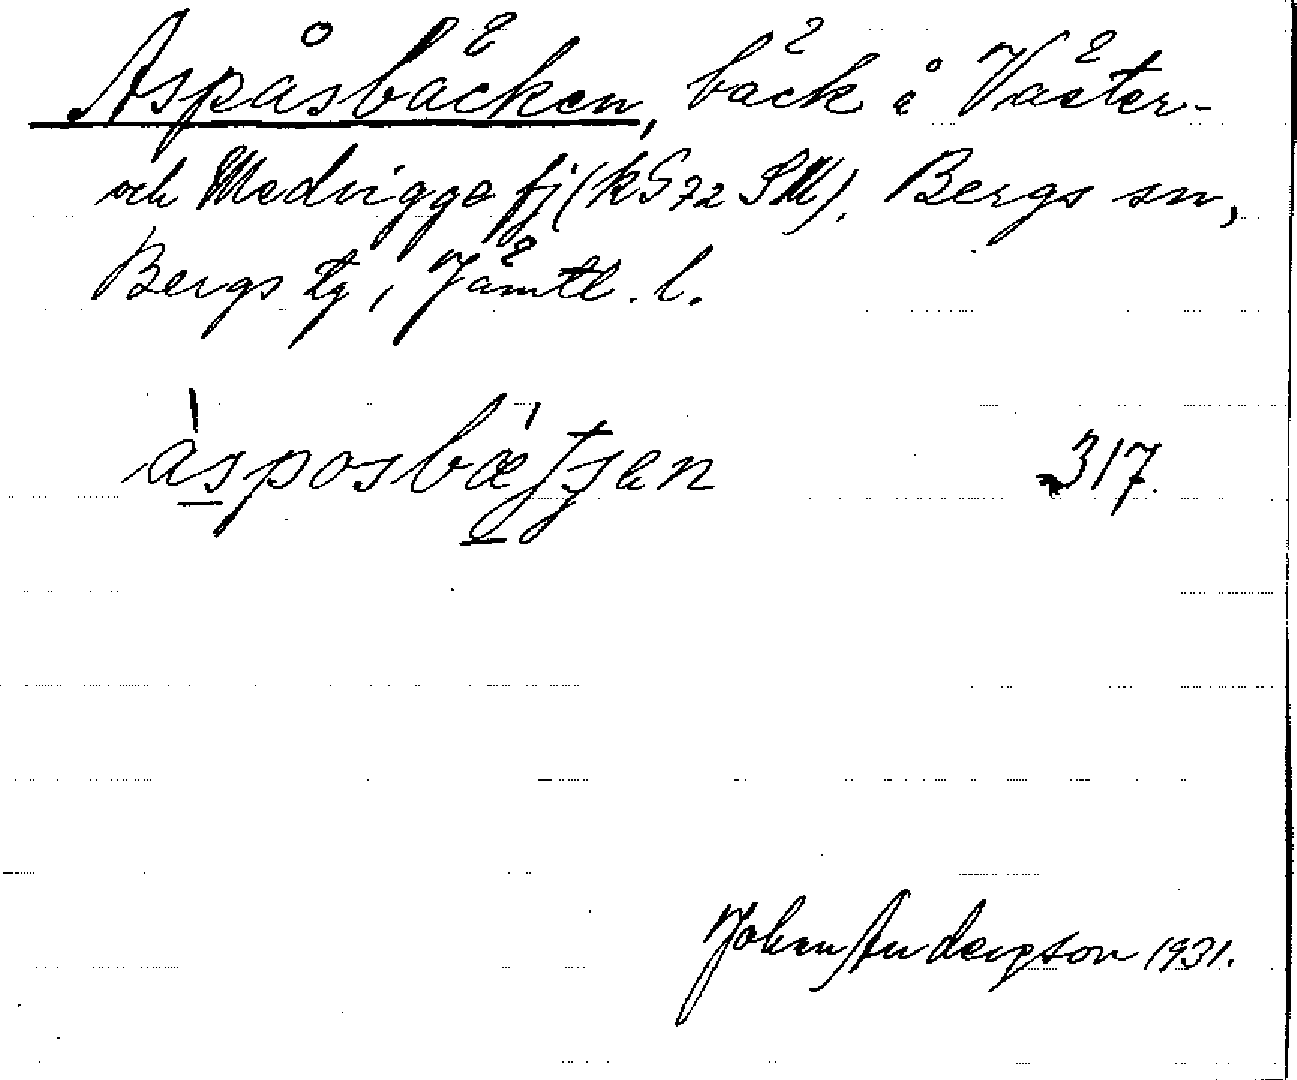 Aspåsbäcken, bäck i Väster-
och Medvigge fj (kS 72 SM), Bergs sn,
Bergs tg, Jämtl. l.
àsposbæʃʃen 317.
Johan Andersson 1931.